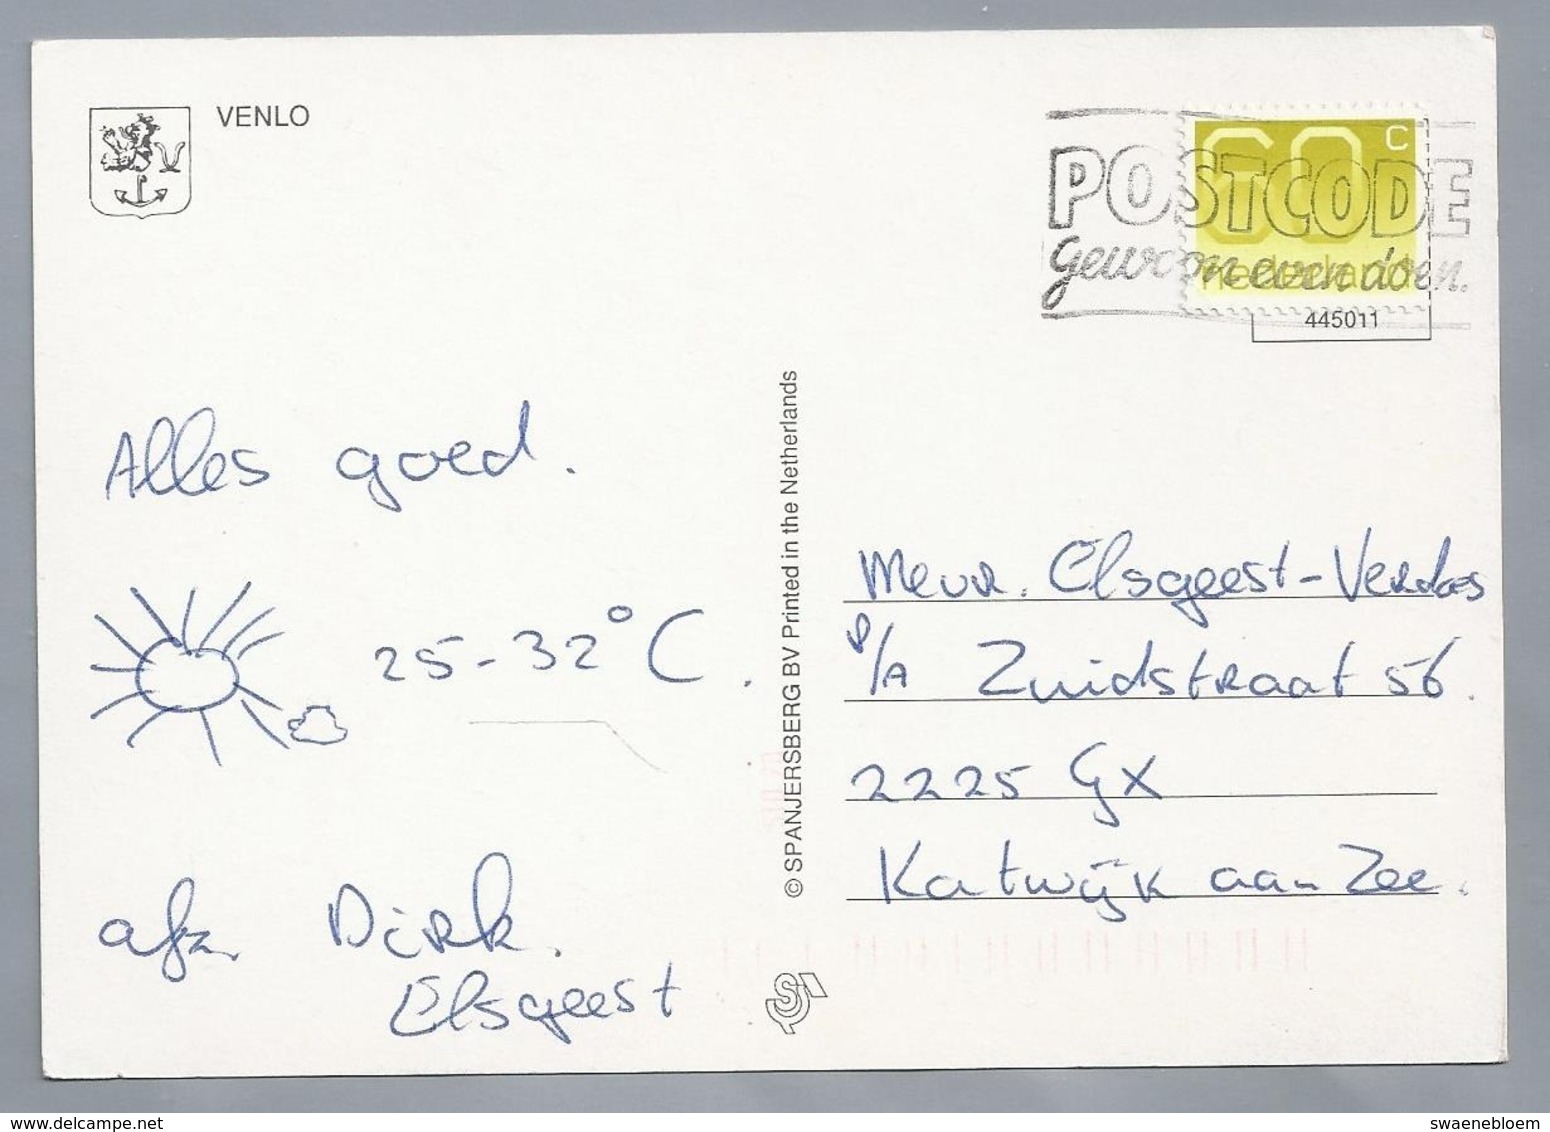 VENLO
60 C
nederland
POSTCODE
gewoon even doen.
445011
Alles goed.
25-32°C.
afz. Dirk.
Elsgeest
© SPANJERSBERG BV Printed in the Netherlands
Mevr. Elsgeest-Verdoes
P/A Zuidstraat 56.
2225 GX
Katwijk aan Zee.
www.delcampe.net
swaenebloem